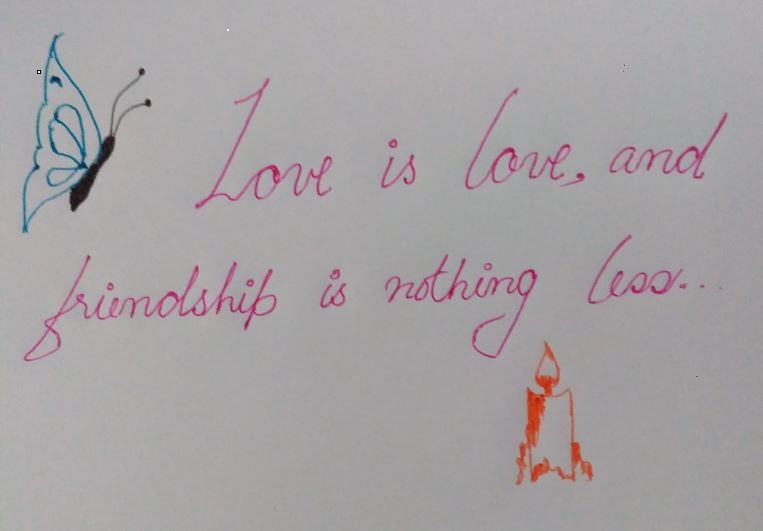 Love is love, and
friendship is nothing less...